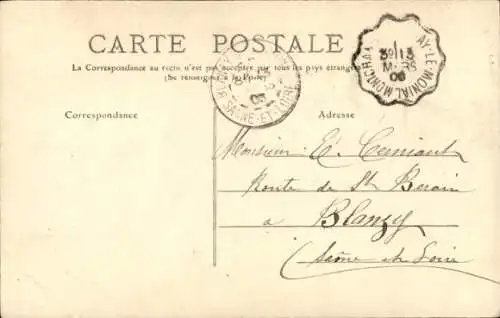 CARTE POSTALE
La Correspondance au recto n'est pas acceptée par tous les pays étrangers
(Se renseigner à la Poste)
Correspondance
Adresse
SAÔNE-ET-LOIRE
AY-LE-MONIAL
13
MARS
06
Monsieur E.
Route de St Berain
à Blanzy
(Saône et Loire